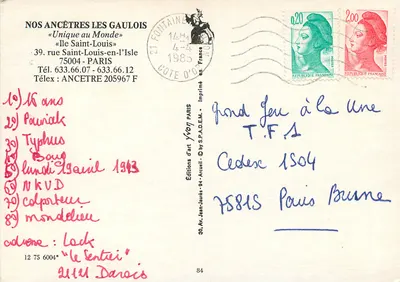 NOS ANCÊTRES LES GAULOIS
«Unique au Monde»
«Ile Saint-Louis»
39. rue Saint-Louis-en-l'Isle
75004 - PARIS
Tél. 633.66.07 - 633.66.12
Télex : ANCETRE 205967 F
1°) 16 ans
2°) Pawiak
3°) Typhus
4°)
5°) lundi 19 avril 1943
6°) NKVD
7°) colporteur
8°) mondelieu
adresse : Lack
"le Sentier"
21121 Darois
12 75 6004
21 FONTAINE
4-4
1985
COTE D'O
Editions d'art yvon PARIS
30, Av. Jean-Jaurès - 94 - Arcueil - © by S.P.A.D.E.M. - Imprimé en France
84
0,20
2,00
Grand Jeu à la Une
T.F.1
Cedex 1504
75815 Paris Brune